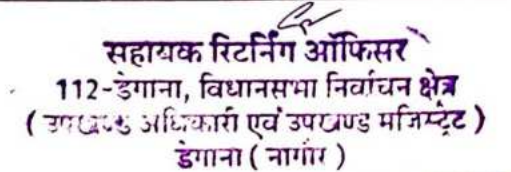 सहायक रिटर्निंग ऑफिसर
112-डेगाना, विधानसभा निर्वाचन क्षेत्र
( उपखण्ड अधिकारी एवं उपखण्ड मजिस्ट्रेट )
डेगाना ( नागौर )